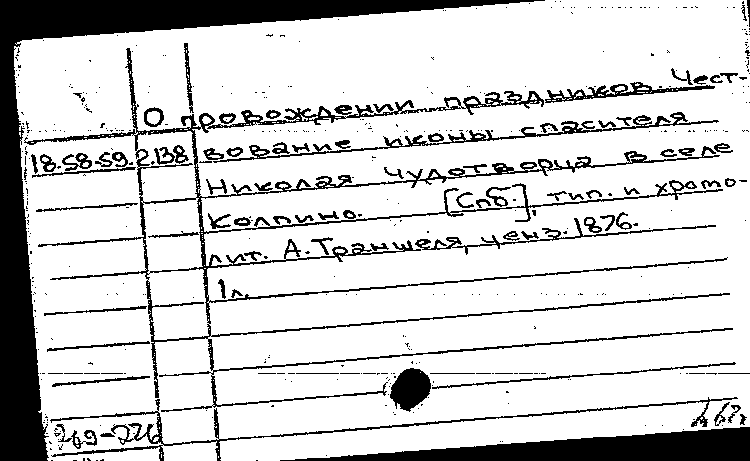 О провождении праздников. Чест-
18.58.59.2.138 вование иконы спасителя
Николая Чудотворца в селе
Колпино. [Спб.], тип. и хромо-
лит. А. Траншеля, ценз. 1876.
1 л.
269-226